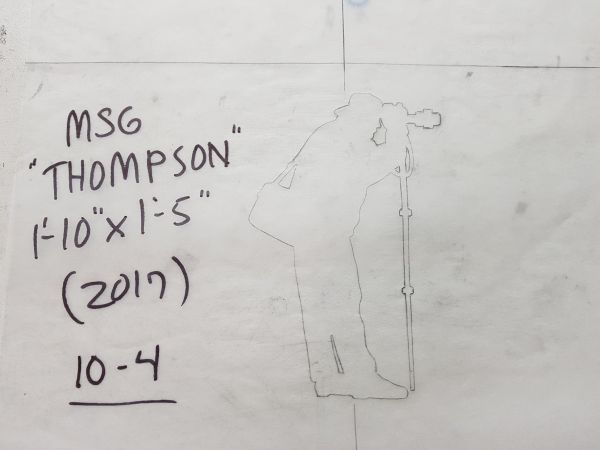 MSG
"THOMPSON"
1'-10" x 1'-5"
(2017)
10-4